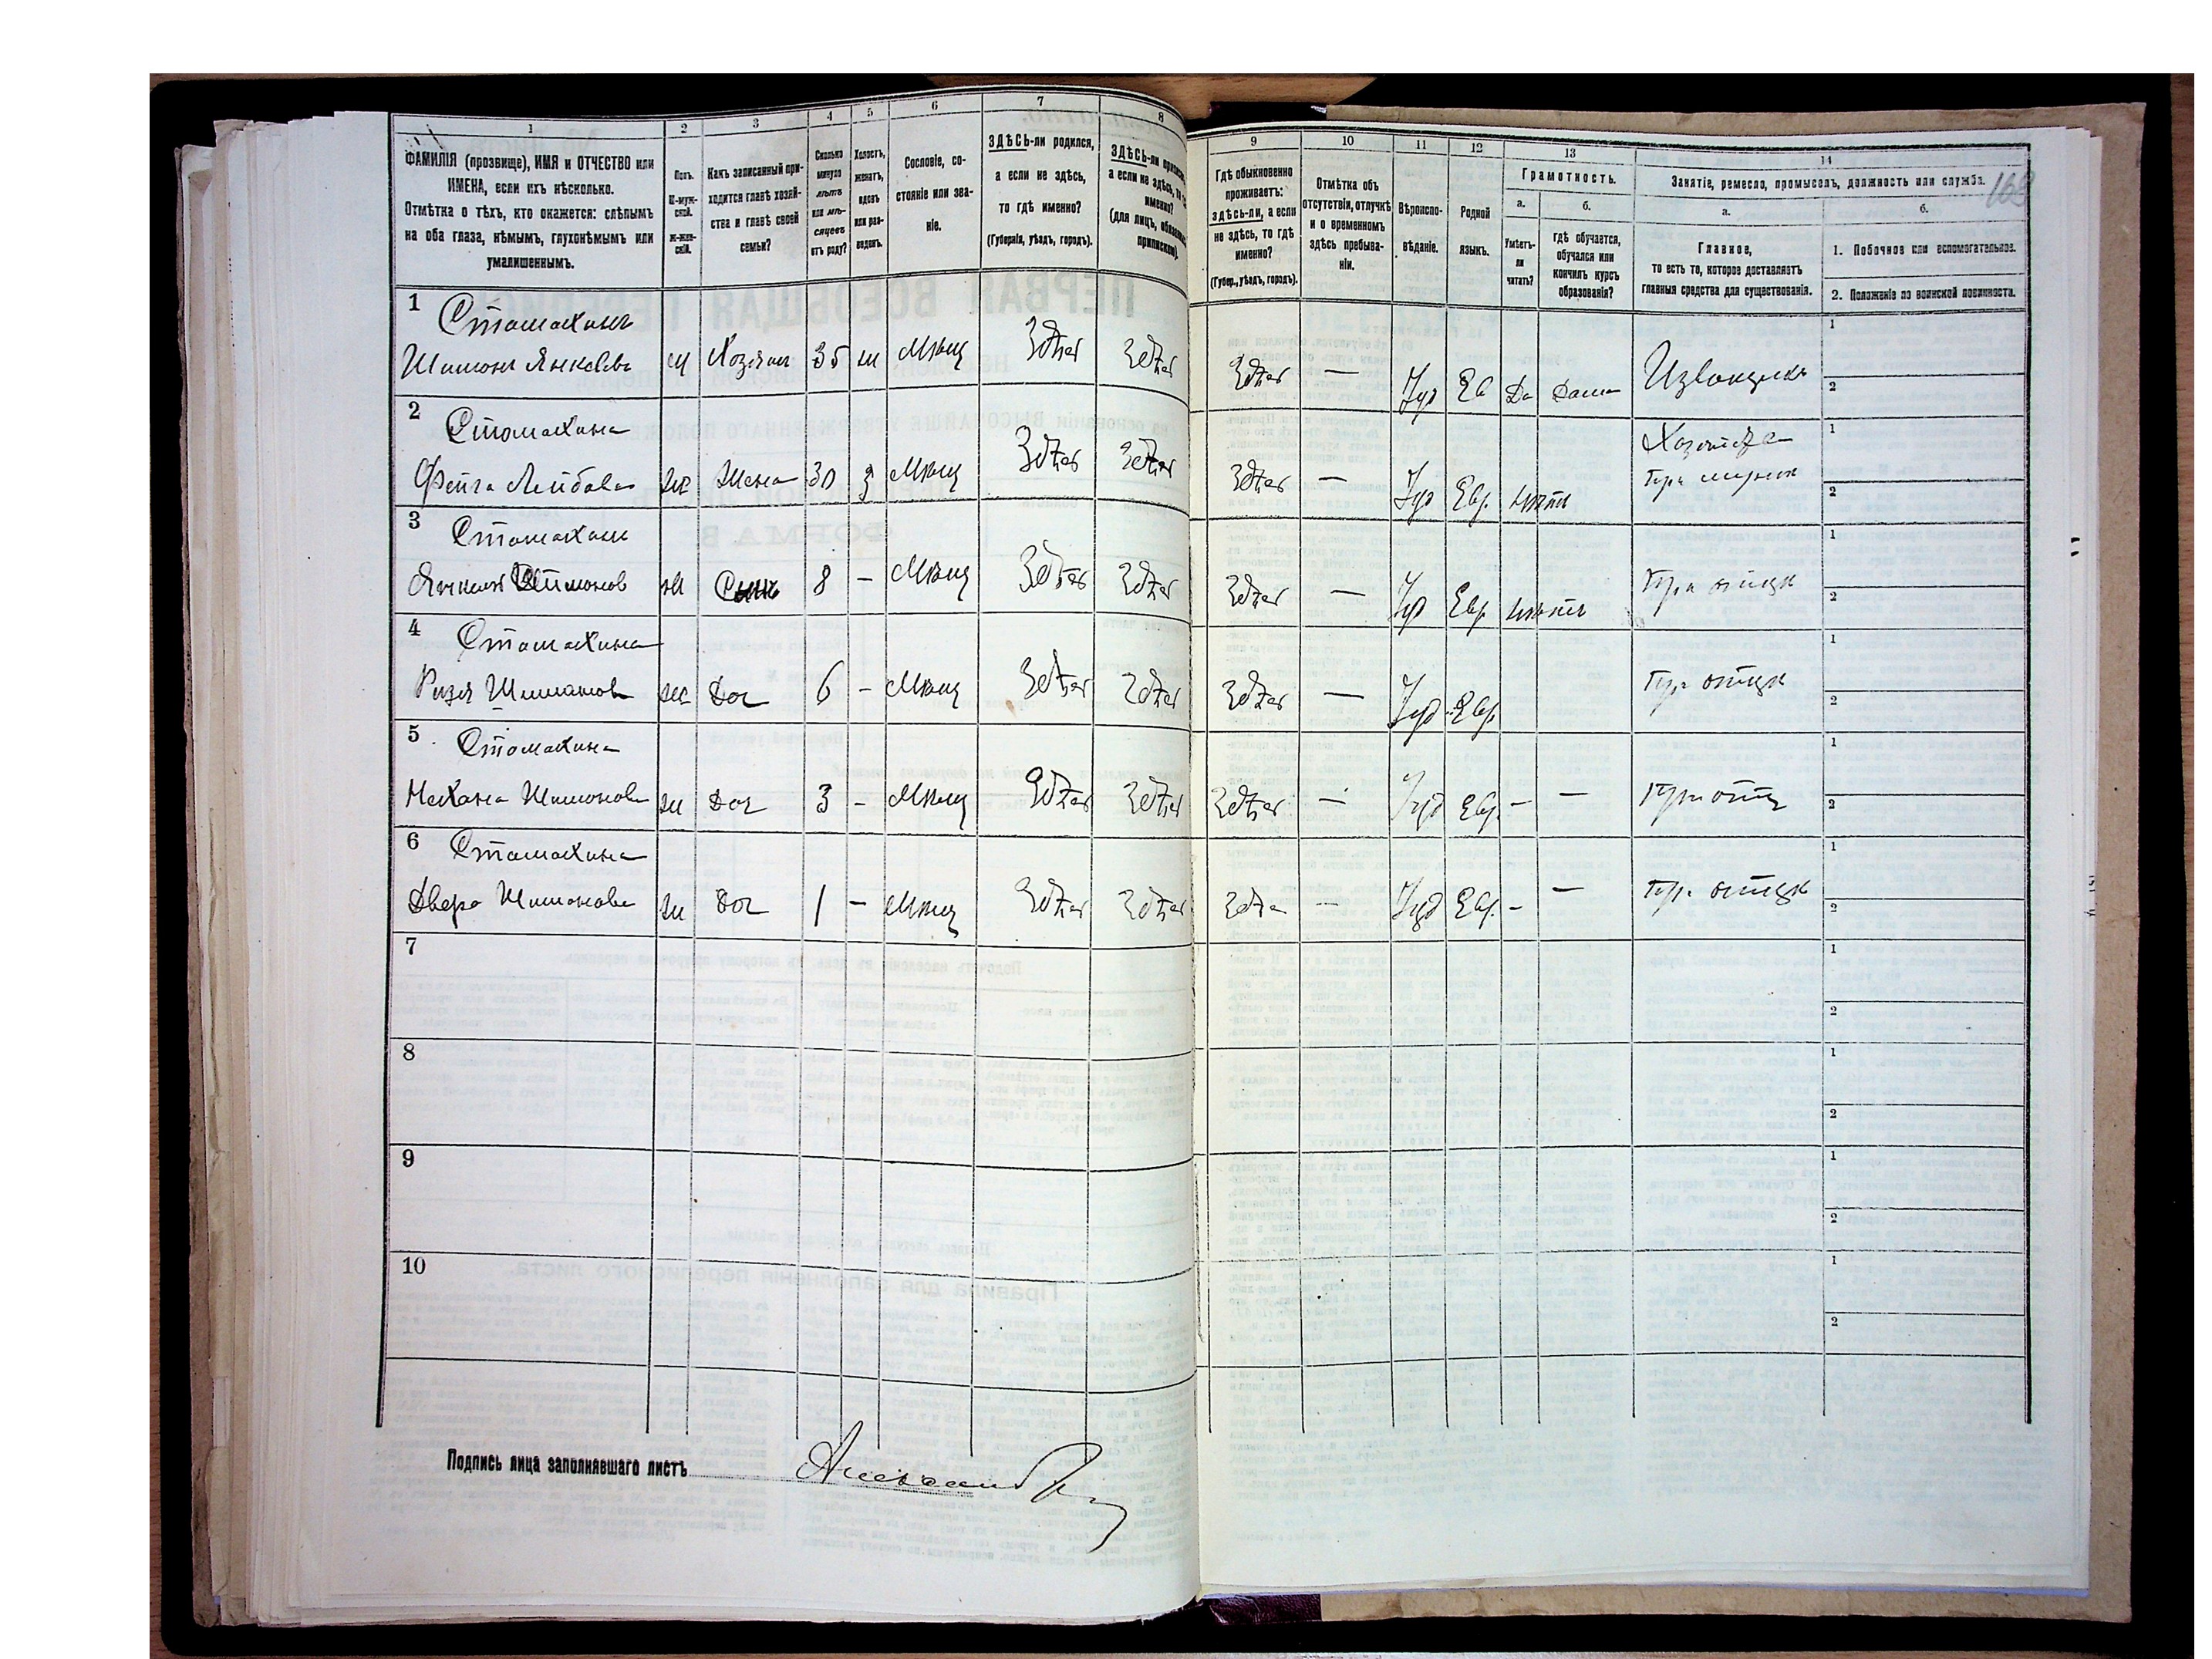 1 2 3 4 5 6 7 8
ФАМИЛІЯ (прозвище), ИМЯ и ОТЧЕСТВО или
ИМЕНА, если ихъ нѣсколько.
Отмѣтка о тѣхъ, кто окажется: слѣпымъ
на оба глаза, нѣмымъ, глухонѣмымъ или
умалишеннымъ.
Полъ.
М-муж-
ской.
Ж-жен-
скій.
Какъ записанный при-
ходится главѣ хозяй-
ства и главѣ своей
семьи?
Сколько
минуло
лѣтъ
или мѣ-
сяцевъ
отъ роду?
Холостъ,
женатъ,
вдовъ
или раз-
веденъ.
Сословіе, со-
стояніе или зва-
ніе.
ЗДѢСЬ-ли родился,
а если не здѣсь,
то гдѣ именно?
(Губернія, уѣздъ, городъ).
ЗДѢСЬ-ли
а если не здѣсь, то гдѣ
именно?
(для лицъ,
припискою)
1 Стомахинъ
Шимонъ Янкелевъ м Хозяин 35 ж Мѣщ Здѣсь Здѣсь
2 Стомахина
Фейга Лейбова ж Жена 30 з Мѣщ Здѣсь Здѣсь
3 Стомахин
Янкель Шимонов м Сынъ 8 - Мѣщ Здѣсь Здѣсь
4 Стомахина
Шимонов ж Доч 6 - Мѣщ Здѣсь Здѣсь
5 Стомахина
Нехама Шимонова ж Доч 3 - Мѣщ Здѣсь Здѣсь
6 Стомахина
Двера Шимонова ж Доч 1 - Мѣщ Здѣсь Здѣсь
7
8
9
10
Подпись лица заполнявшаго листъ
163
9 10 11 12 13 14
Гдѣ обыкновенно
проживаетъ:
здѣсь-ли, а если
не здѣсь, то гдѣ
именно?
(Губер., уѣздъ, городъ).
Отмѣтка объ
отсутствіи, отлучкѣ
и о временномъ
здѣсь пребыва-
ніи.
Вѣроиспо-
вѣданіе.
Родной
языкъ.
Грамотность.
а. б.
Умѣетъ-
ли
читать?
гдѣ обучается,
обучался или
кончилъ курсъ
образованія?
Занятіе, ремесло, промыселъ, должность или служба.
а. б.
Главное,
то есть то, которое доставляетъ
главныя средства для существованія.
1. Побочное или вспомогательное.
2. Положеніе по воинской повинности.
Здѣсь — Іуд Ев Да Дома Извощикъ
1
2
Хозяйка
Здѣсь — Іуд Евр. нѣтъ При мужѣ
1
2
Здѣсь — Іуд Евр нѣтъ При отцѣ
1
2
Здѣсь — Іуд Евр При отцѣ
1
2
Здѣсь — Іуд Евр. - — При отц
1
2
Здѣс — Іуд Евр. - — При отцѣ
1
2
1
2
1
2
1
2
1
2